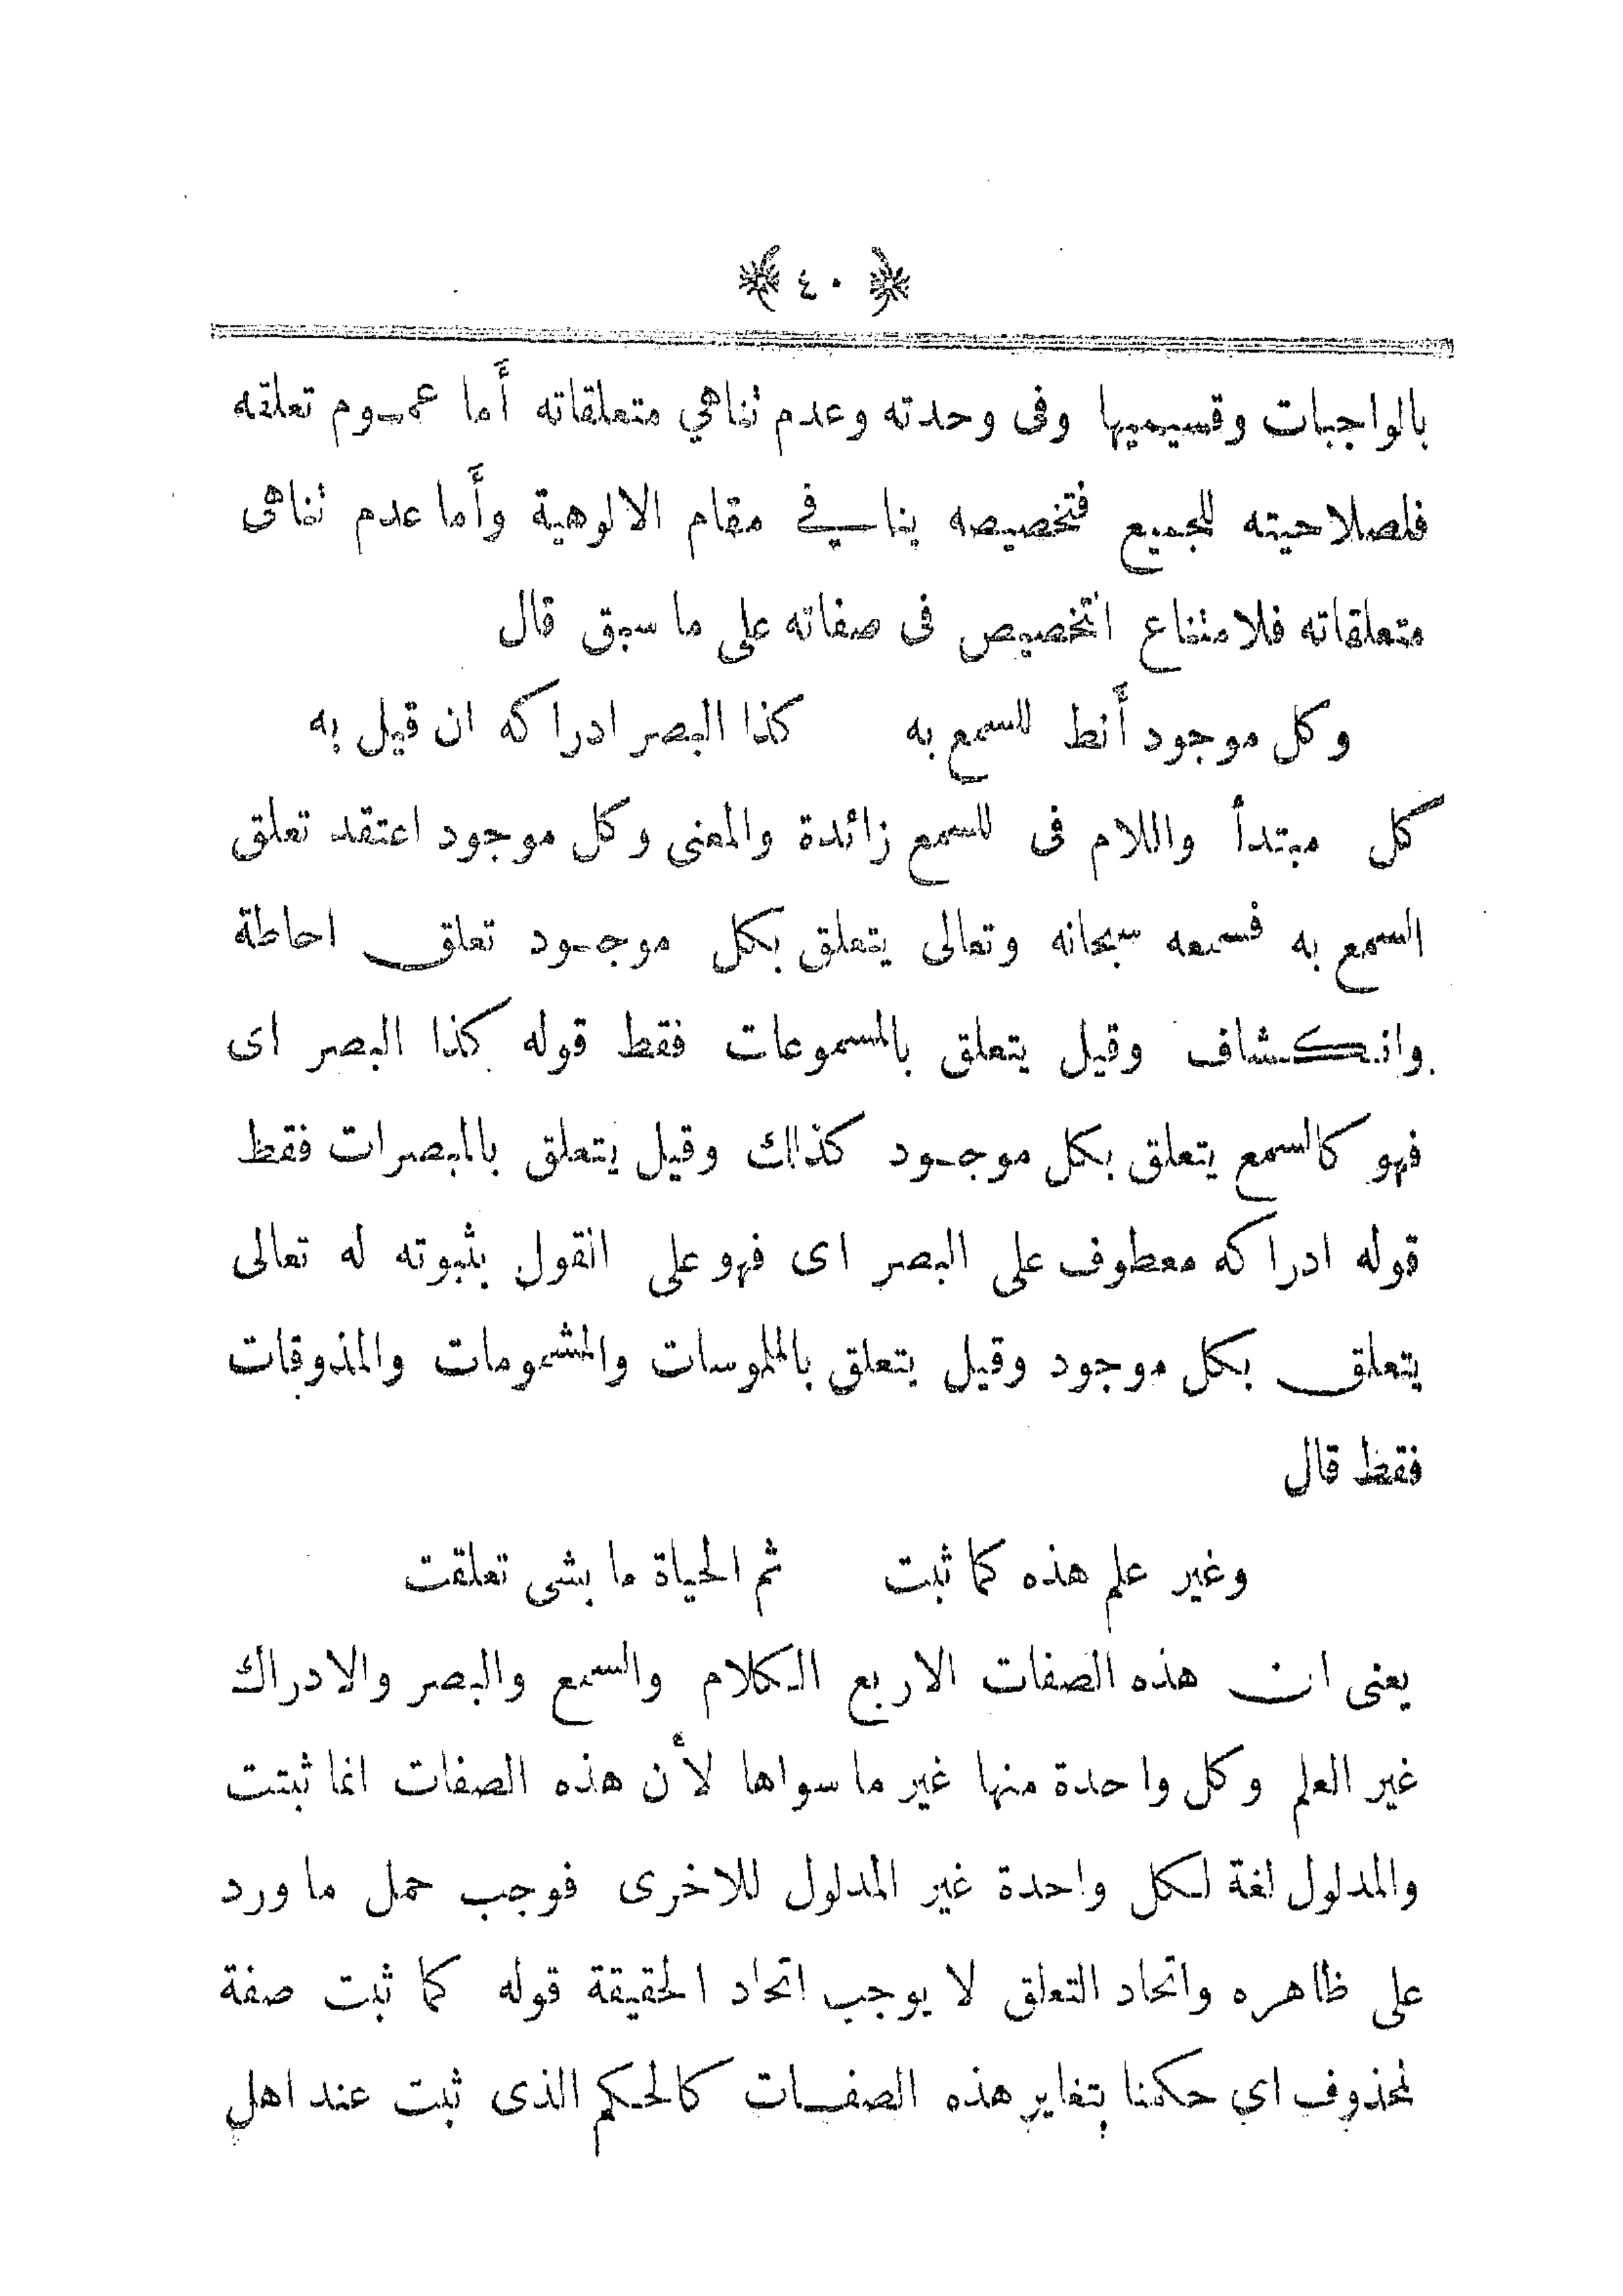 ٤٠
بالواجبات وقسيميها وفى وحدته وعدم تناهي متعلقاته أما عموم تعلقه
فلصلاحيته للجميع فتخصيصه ينافي مقام الالوهية وأما عدم تناهى
متعلقاته فلامتناع التخصيص فى صفاته على ما سبق قال
وكل موجود أنط للسمع به كذا البصر ادراكه ان قيل به
كل مبتدأ واللام فى للسمع زائدة والمعنى وكل موجود اعتقد تعلق
السمع به فسمعه سبحانه وتعالى يتعلق بكل موجود تعلق احاطة
وانكشاف وقيل يتعلق بالمسموعات فقط قوله كذا البصر اى
فهو كالسمع يتعلق بكل موجود كذلك وقيل يتعلق بالمبصرات فقط
قوله ادراكه معطوف على البصر اى فهو على القول بثبوته له تعالى
يتعلق بكل موجود وقيل يتعلق بالملموسات والمشمومات والمذوقات
فقط قال
وغير علم هذه كما ثبت ثم الحياة ما بشى تعلقت
يعنى ان هذه الصفات الاربع الكلام والسمع والبصر والادراك
غير العلم وكل واحدة منها غير ما سواها لأن هذه الصفات انما ثبتت
والمدلول لغة لكل واحدة غير المدلول للاخرى فوجب حمل ما ورد
على ظاهره واتحاد التعلق لا يوجب اتحاد الحقيقة قوله كما ثبت صفة
لمحذوف اى حكمنا بتغاير هذه الصفات كالحكم الذى ثبت عند اهل